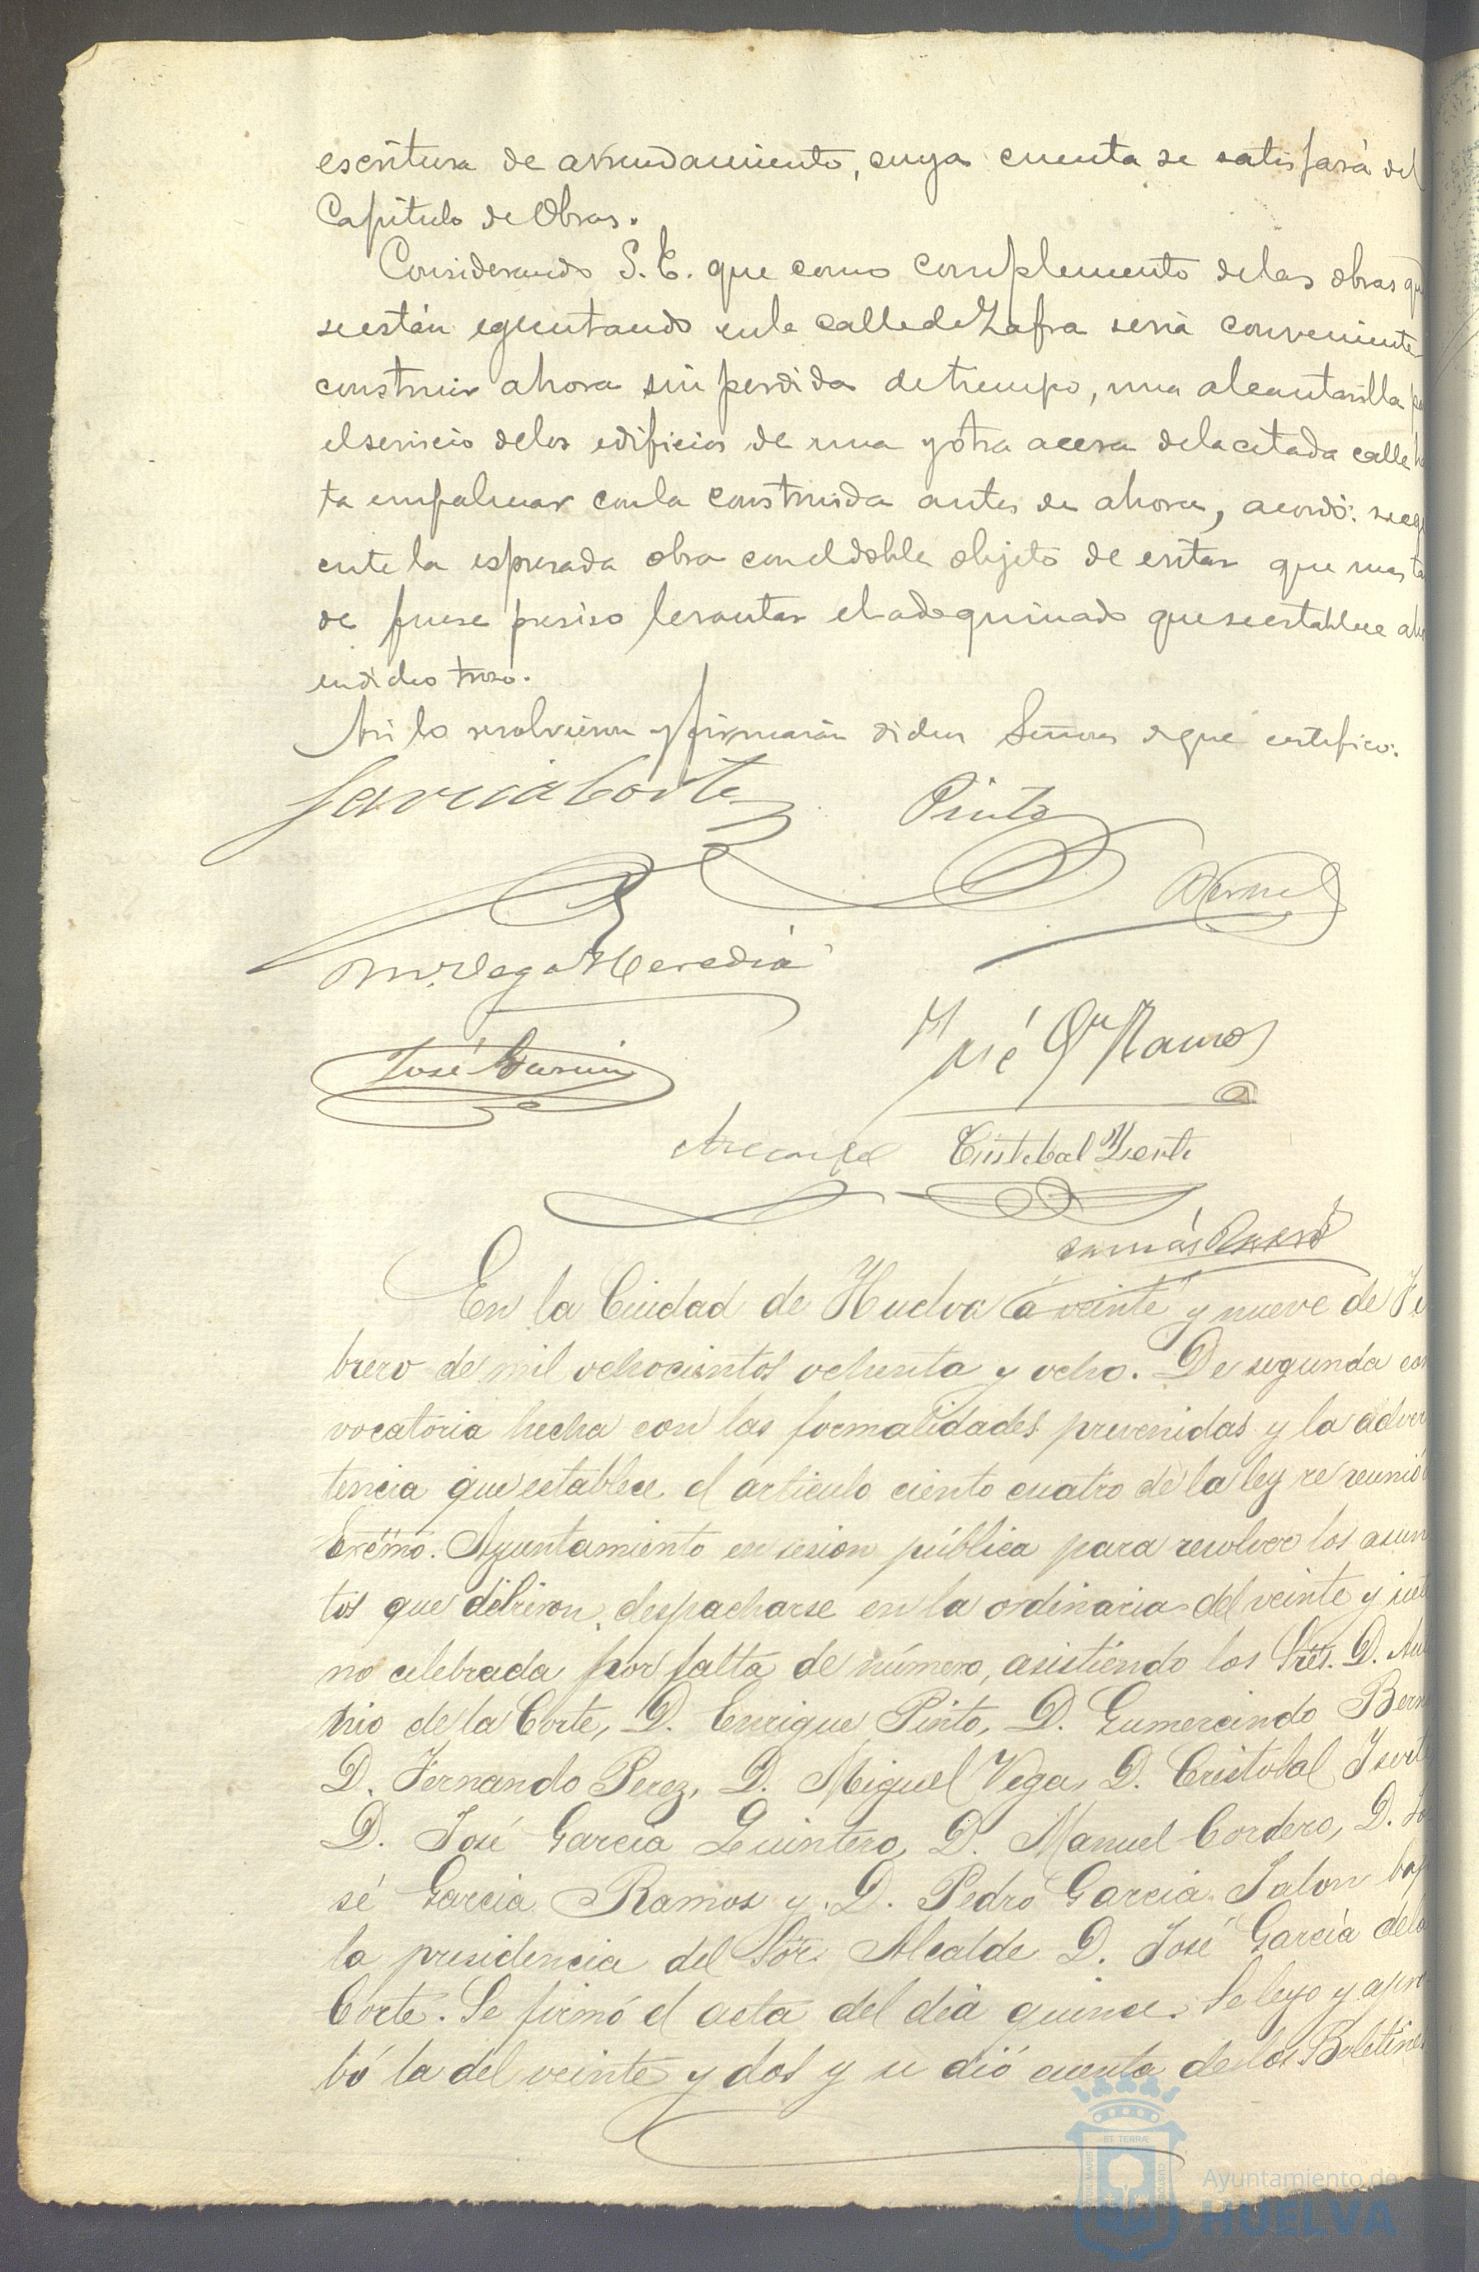 escritura de arrendamiento, cuya cuenta se satisfará del
Capitulo de Obras.
Considerando S. E. que como complemento delas obras que
seestán egecutando enla callede Zafra seria conveniente
construir ahora sin perdida detiempo, una alcantarilla
elservicio delos edificios de una yotra acera delacitada calle
ta empalmar conla construida antes de ahora, acordó:
cutela espresada obra coneldoble objeto de evitar que mas
de fuese preciso levantar eladoquinado queseestablece
endicho trozo.
Asi lo resolvieron y firmarán dichos Señores deque certifico.
Garcia Corte
Pinto
Bernal
M. Vega Heredia
José Garcia
José Ga Ramos
Cristobal
Tomás
En la Ciudad de Huelva á veinte y nueve de Fe
brero de mil ochocientos ochenta y ocho. De segunda con
vocatoria hecha con las formalidades prevenidas y la adver
tencia que establece el articulo ciento cuatro de la ley se reunió
Excmo. Ayuntamiento en sesion pública para resolver los asun
tos que debieron despacharse en la ordinaria del veinte y siete
no celebrada por falta de número, asistiendo los Sres. D.
nio de la Corte, D. Enrique Pinto, D. Gumercindo Bern
D. Fernando Perez, D. Miguel Vega, D. Cristobal
D. José Garcia Quintero, D. Manuel Cordero, D. Jo
sé Garcia Ramos y D. Pedro Garcia Jalon bajo
la presidencia del Sor. Alcalde D. José García dela
Corte. Se firmó el acta del dia quince. Se leyo y apro
bó la del veinte y dos y se dió cuenta delos Boletines
Ayuntamiento de
HUELVA